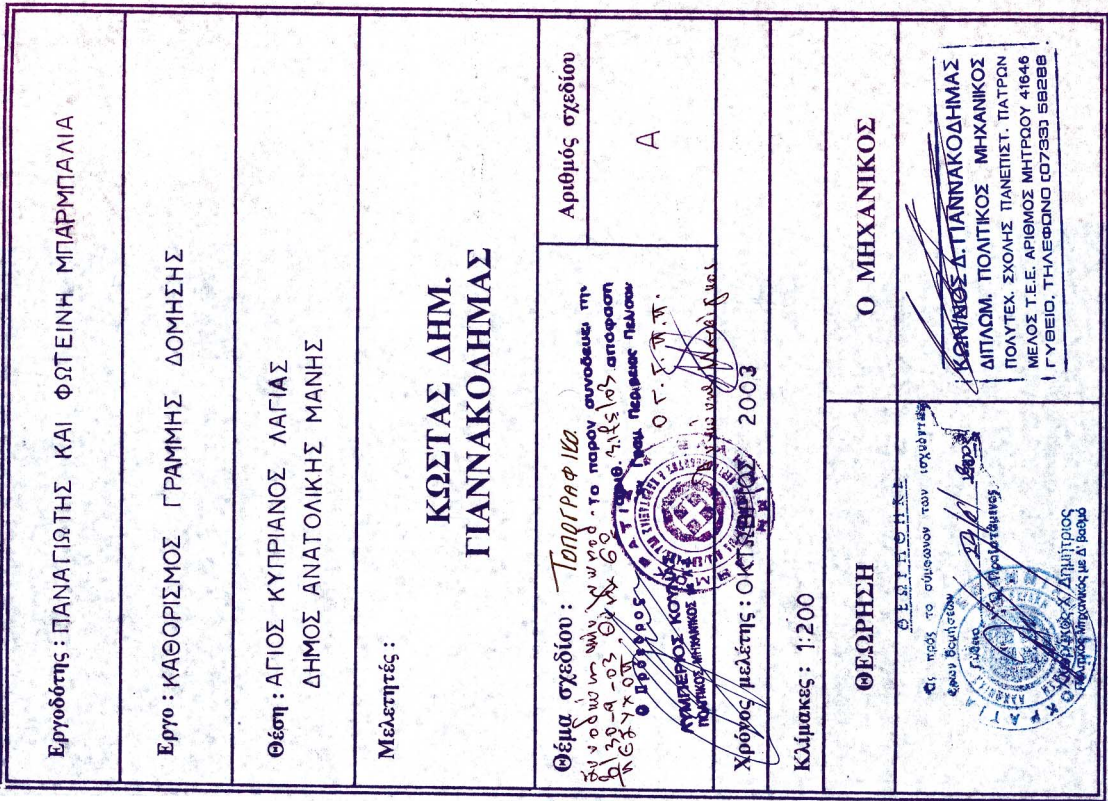 Εργοδότης : ΠΑΝΑΓΙΩΤΗΣ ΚΑΙ ΦΩΤΕΙΝΗ ΜΠΑΡΜΠΑΛΙΑ
Εργο : ΚΑΘΟΡΙΣΜΟΣ ΓΡΑΜΜΗΣ ΔΟΜΗΣΗΣ
Θέση : ΑΓΙΟΣ ΚΥΠΡΙΑΝΟΣ ΛΑΓΙΑΣ
ΔΗΜΟΣ ΑΝΑΤΟΛΙΚΗΣ ΜΑΝΗΣ
Μελετητές :
ΚΩΣΤΑΣ ΔΗΜ.
ΓΙΑΝΝΑΚΟΔΗΜΑΣ
Θέμα σχεδίου : Τοπογραφικο
Το παρόν συνοδεύει την
απόφαση
Γραμ Περιφέρειας Πελ/σου
Ο Γ.Γ.Π.Π.
Ο Πρόεδρος
ΠΟΛΙΤΙΚΟΣ ΜΗΧΑΝΙΚΟΣ
Αριθμός σχεδίου
Α
Χρόνος μελέτης : ΟΚΤΩΒΡΙΟΣ 2003
Κλίμακες : 1:200
ΘΕΩΡΗΣΗ
ΘΕΩΡΗΘΗΚΕ
Ως πρός το σύμφωνον των ισχυουσών
όρων δομήσεων
Γύθειο
Ο Προϊστάμενος
Πολιτικός Μηχανικός με Δ' βαθμό
Ο ΜΗΧΑΝΙΚΟΣ
ΚΩΝ/ΝΟΣ Δ. ΓΙΑΝΝΑΚΟΔΗΜΑΣ
ΔΙΠΛΩΜ. ΠΟΛΙΤΙΚΟΣ ΜΗΧΑΝΙΚΟΣ
ΠΟΛΥΤΕΧ. ΣΧΟΛΗΣ ΠΑΝΕΠΙΣΤ. ΠΑΤΡΩΝ
ΜΕΛΟΣ Τ.Ε.Ε. ΑΡΙΘΜΟΣ ΜΗΤΡΩΟΥ 41646
ΓΥΘΕΙΟ, ΤΗΛΕΦΩΝΟ (0733) 58288